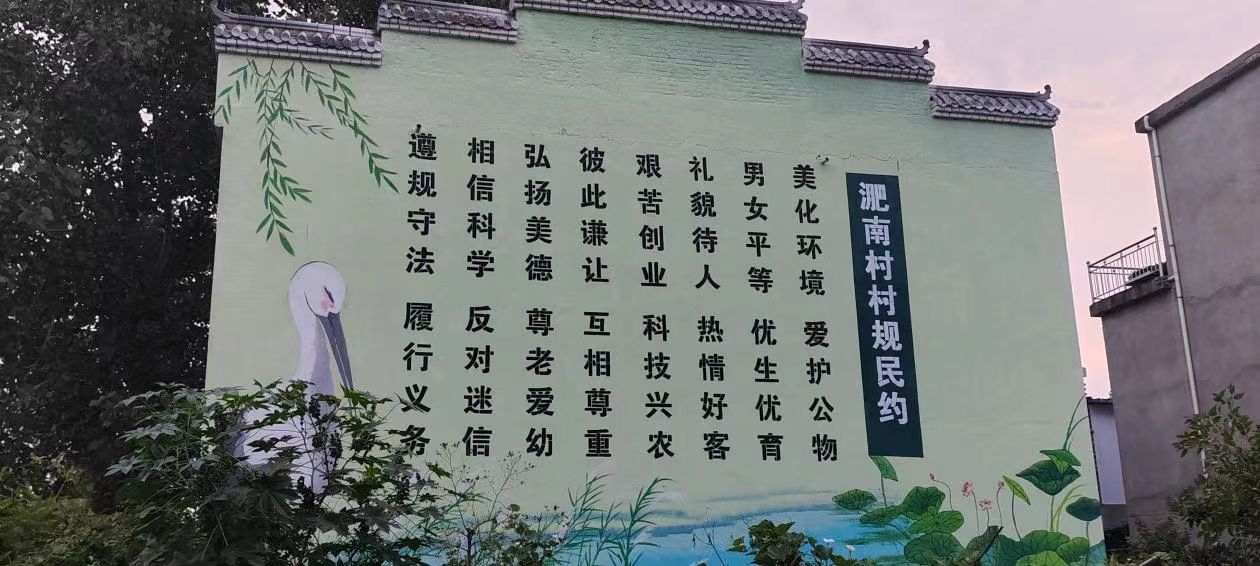 淝南村村规民约
美化环境 爱护公物
男女平等 优生优育
礼貌待人 热情好客
艰苦创业 科技兴农
彼此谦让 互相尊重
弘扬美德 尊老爱幼
相信科学 反对迷信
遵规守法 履行义务